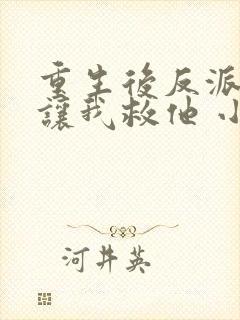 重生後反派
讓我救他 小
河井英